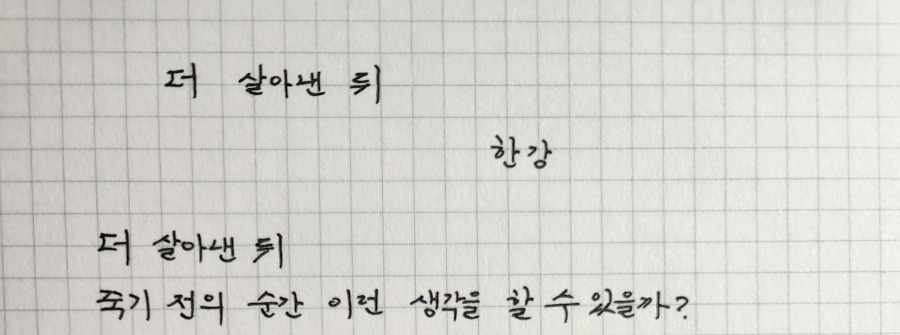 더 살아낸 뒤
한강
더 살아낸 뒤
죽기 전의 순간 이런 생각을 할 수 있을까?